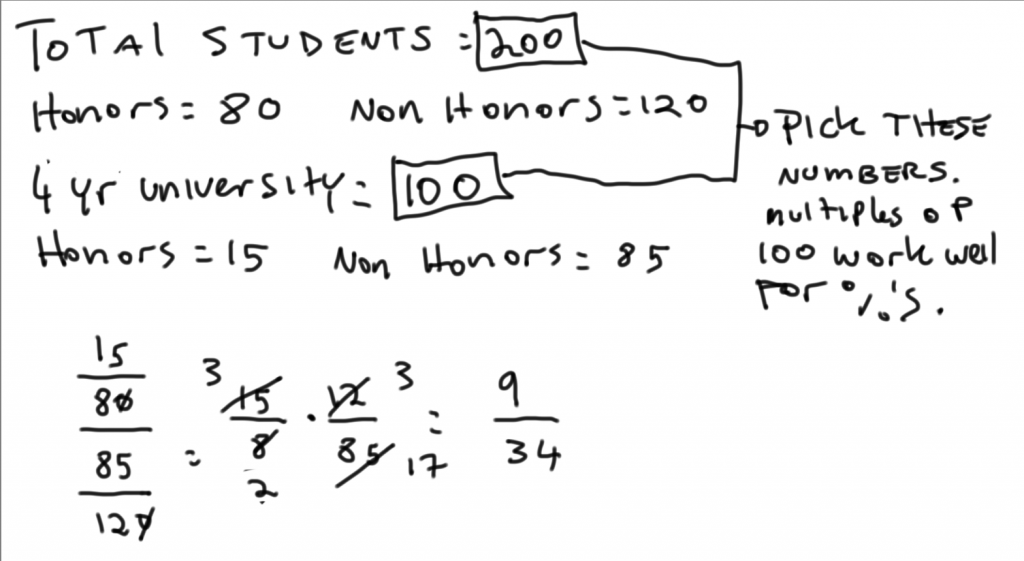 TOTAL STUDENTS = 200
Honors = 80 Non Honors = 120
4 yr university = 100
Honors = 15 Non Honors = 85
PICK THESE
NUMBERS.
multiples of
100 work well
for %'s.
15
80
85
120
=
3 15 · 12 3 = 9
8 85 17 34
2